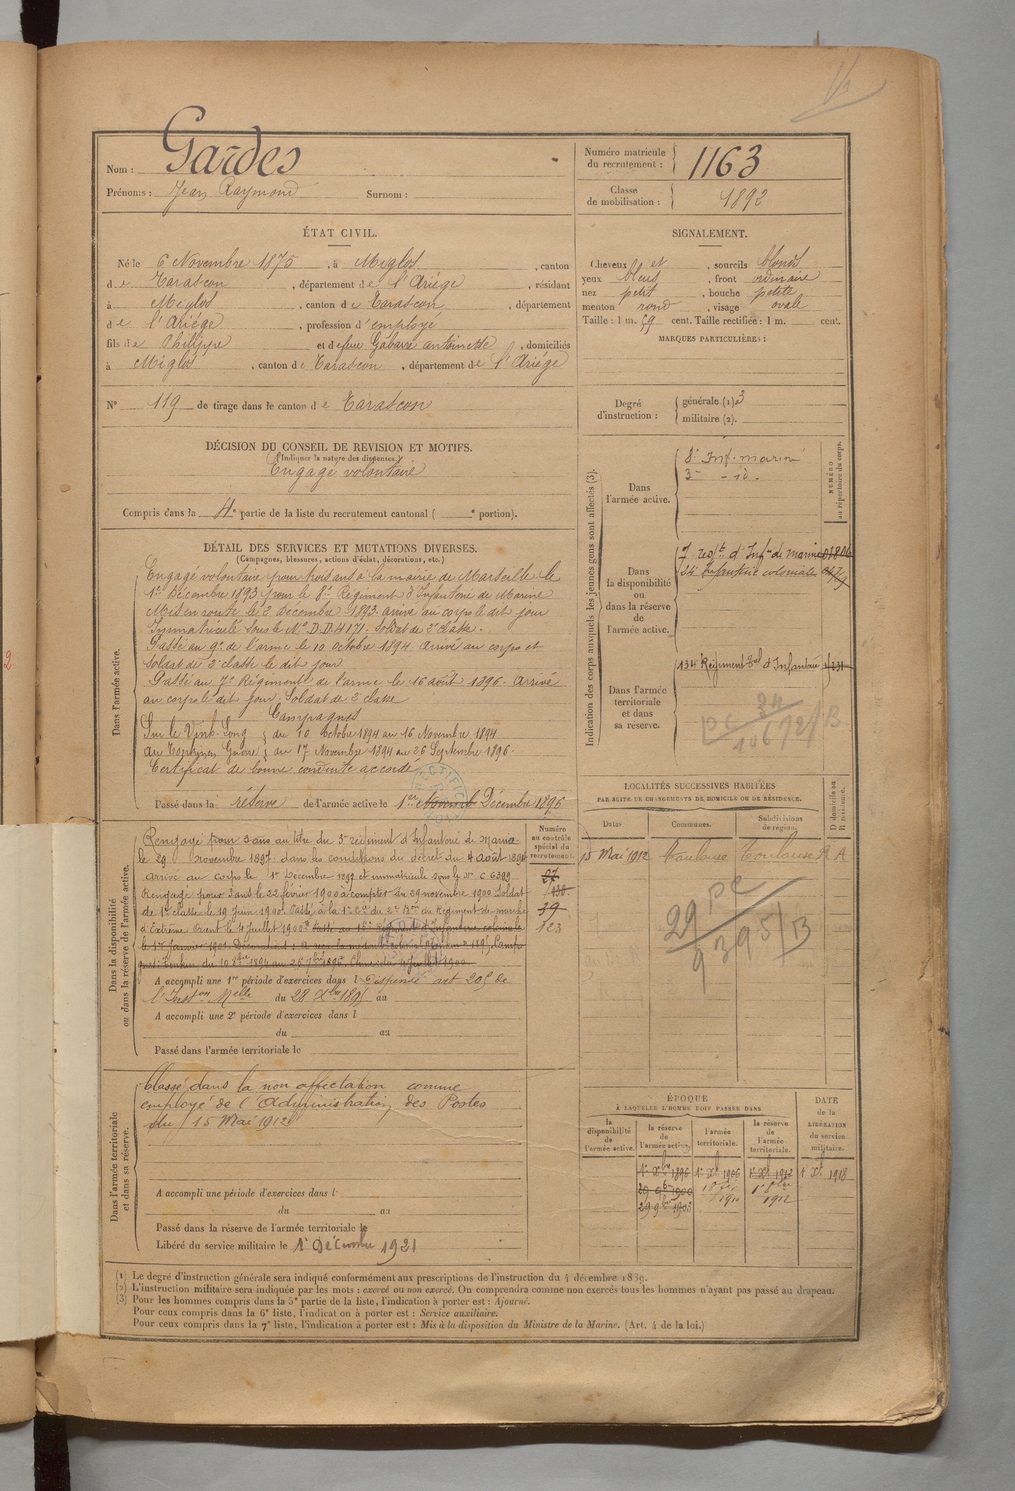 Nom : Gardes
Prénoms : Jean Raymond Surnom :
Numéro matricule du recrutement : 1163
Classe de mobilisation : 1892
ÉTAT CIVIL.
Né le 6 Novembre 1875, à Miglos, canton
de Tarascon, département de l'Ariége, résidant
à Miglos, canton de Tarascon, département
de l'Ariége, profession d'employé
fils de Philippe et de feue Gabarre antoinette, domiciliés
à Miglos, canton de Tarascon, département de l'Ariége
N° 119 de tirage dans le canton de Tarascon
SIGNALEMENT.
Cheveux et, sourcils blonds
yeux bleus, front ordinaire
nez petit, bouche petite
menton rond, visage ovale
Taille : 1 m. 59 cent. Taille rectifiée : 1 m. cent.
MARQUES PARTICULIÈRES :
Degré d'instruction : générale (1) 3
militaire (2).
DÉCISION DU CONSEIL DE REVISION ET MOTIFS.
(Indiquer la nature des dispenses.)
Engagé volontaire
Compris dans la 4e partie de la liste du recrutement cantonal ( e portion).
DÉTAIL DES SERVICES ET MUTATIONS DIVERSES.
(Campagnes, blessures, actions d'éclat, décorations, etc.)
Dans l'armée active.
Engagé volontaire pour trois ans à la mairie de Marseille le
1er Décembre 1893 pour le 8e Régiment d'Infanterie de Marine
Mis en route le 2 Décembre 1893. arrivé au corps le dit jour
Immatriculé sous le N° D.D. 4171. Soldat de 2e classe.
Passé au 9e de l'arme le 10 Octobre 1894 arrivé au corps et
soldat de 2e classe le dit jour
Passé au 7e Régiment de l'arme le 16 août 1896. Arrivé
au corps le dit jour. Soldat de 2e classe
Campagnes
du 10 Octobre 1894 au 16 Novembre 1894
du 17 Novembre 1894 au 26 Septembre 1896.
Certificat de bonne conduite accordé
Passé dans la réserve de l'armée active le 1er Novemb Décembre 1896
Indication des corps auxquels les jeunes gens sont affectés (3).
NUMÉRO au répertoire du corps.
Dans l'armée active.
8e Inf. marine
3e - id.
Dans la disponibilité ou dans la réserve de l'armée active.
7 regt d'Infie de marine
24e Infanterie coloniale
Dans l'armée territoriale et dans sa réserve.
134 Régiment tal d'Infanterie
LOCALITÉS SUCCESSIVES HABITÉES
PAR SUITE DE CHANGEMENTS DE DOMICILE OU DE RÉSIDENCE.
Dates. Communes. Subdivisions de région. D domicile ou R résidence.
15 Mai 1912 Toulouse Toulouse R A
Dans la disponibilité ou dans la réserve de l'armée active.
Numéro au contrôle spécial du recrutement.
Rengagé pour 3 ans au titre du 3e régiment d'Infanterie de Marine
le 29 novembre 1897 dans les conditions du décret du 4 août 1894
arrivé au corps le 1er Décembre 1897 et immatriculé sous le N° C 6399
Rengagé pour 3 ans le 22 février 1900 à compter du 29 novembre 1900 Soldat
de 1re classe le 19 Juin 1900. Passé à la 1re Cie du 2e Bon du Régiment de marche
d'Extrême Orient le 4 Juillet 1900
39
123
A accompli une 1re période d'exercices dans l Dispensé art 205 de
l'Inston Melle du 28 Xbre 1895 au
A accompli une 2e période d'exercices dans l
du au
Passé dans l'armée territoriale le
Dans l'armée territoriale et dans sa réserve.
Classé dans la non affectation comme
employé de l'Administration des Postes
du 15 Mai 1912
A accompli une période d'exercices dans l
du au
Passé dans la réserve de l'armée territoriale le
Libéré du service militaire le 1er Décembre 1921
ÉPOQUE
À LAQUELLE L'HOMME DOIT PASSER DANS
la disponibilité de l'armée active. la réserve de l'armée active. l'armée territoriale. la réserve de l'armée territoriale.
DATE de la LIBÉRATION du service militaire.
1er Xbre 1896 1er Xe 1906 1er Xe 1912 1er Xe 1918
29 9bre 1900
29 9bre 1903
(1) Le degré d'instruction générale sera indiqué conformément aux prescriptions de l'instruction du 4 décembre 1889.
(2) L'instruction militaire sera indiquée par les mots : exercé ou non exercé. On comprendra comme non exercés tous les hommes n'ayant pas passé au drapeau.
(3) Pour les hommes compris dans la 5e partie de la liste, l'indication à porter est : Ajourné.
Pour ceux compris dans la 6e liste, l'indication à porter est : Service auxiliaire.
Pour ceux compris dans la 7e liste, l'indication à porter est : Mis à la disposition du Ministre de la Marine. (Art. 4 de la loi.)